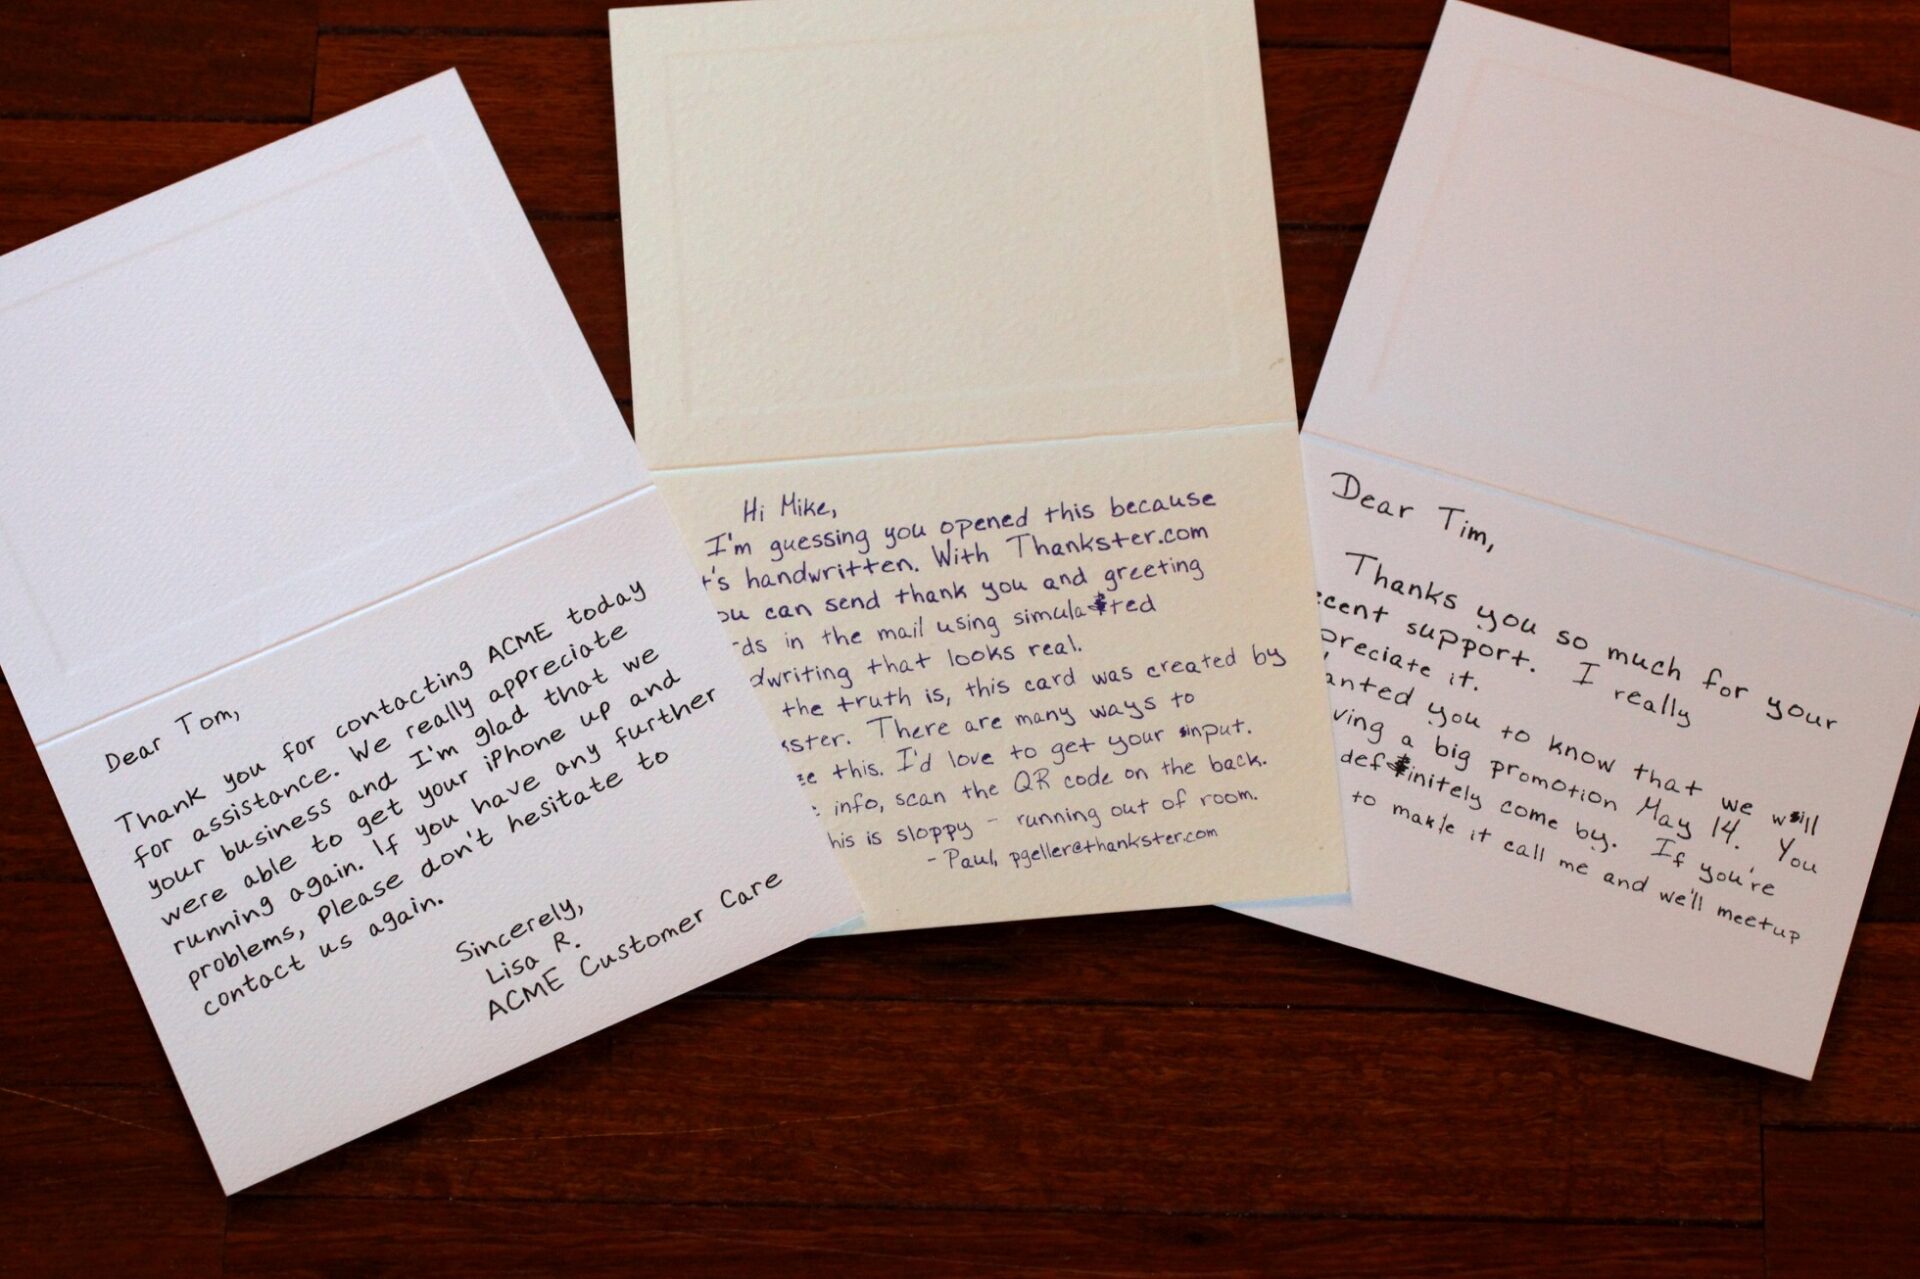 Dear Tom,
Thank you for contacting ACME today
for assistance. We really appreciate
your business and I'm glad that we
were able to get your iPhone up and
running again. If you have any further
problems, please don't hesitate to
contact us again.
Sincerely,
Lisa R.
ACME Customer Care
Hi Mike,
I'm guessing you opened this because
t's handwritten. With Thankster.com
ou can send thank you and greeting
rds in the mail using simulated
dwriting that looks real.
the truth is, this card was created by
kster. There are many ways to
ze this. I'd love to get your input.
info, scan the QR code on the back.
his is sloppy - running out of room.
- Paul, pgeller@thankster.com
Dear Tim,
Thanks you so much for your
ecent support. I really
preciate it.
anted you to know that we will
ving a big promotion May 14. You
definitely come by. If you're
to make it call me and we'll meetup